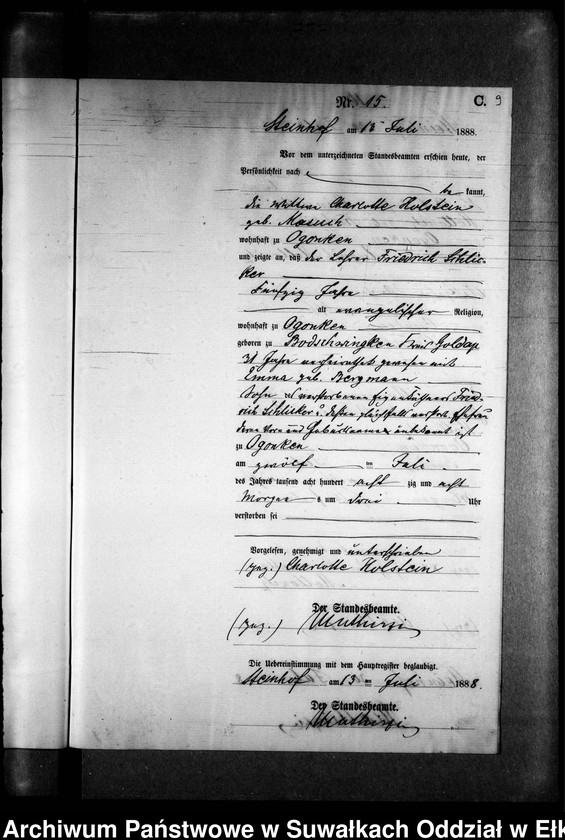 Nr. 15. C. 9
Steinhof am 13 Juli 1888.
Vor dem unterzeichneten Standesbeamten erschien heute, der
Persönlichkeit nach
be kannt,
die Wittwe Charlotte Holstein
geb. Masuch
wohnhaft zu Ogonken
und zeigte an, daß der Lehrer Friedrich Schlic-
ker
Fünfzig Jahre
alt evangelischer Religion,
wohnhaft zu Ogonken
geboren zu Bodschwingken Kreis Goldap
31 Jahre verheirathet gewesen mit
Emma geb. Bergmann
Sohn des verstorbenen Eigenkäthners Fried-
rich Schlicker u. dessen gleichfalls verstorb. Ehefrau
deren Vor und Geburtsname unbekannt ist
zu Ogonken
am zwölf ten Juli
des Jahres tausend acht hundert acht zig und acht
Morgen s um drei Uhr
verstorben sei
Vorgelesen, genehmigt und unterschrieben
(gez.) Charlotte Holstein
Der Standesbeamte.
(gez.)
Die Uebereinstimmung mit dem Hauptregister beglaubigt.
Steinhof am 13 ten Juli 1888.
Der Standesbeamte.
Archiwum Państwowe w Suwałkach Oddział w Ełk